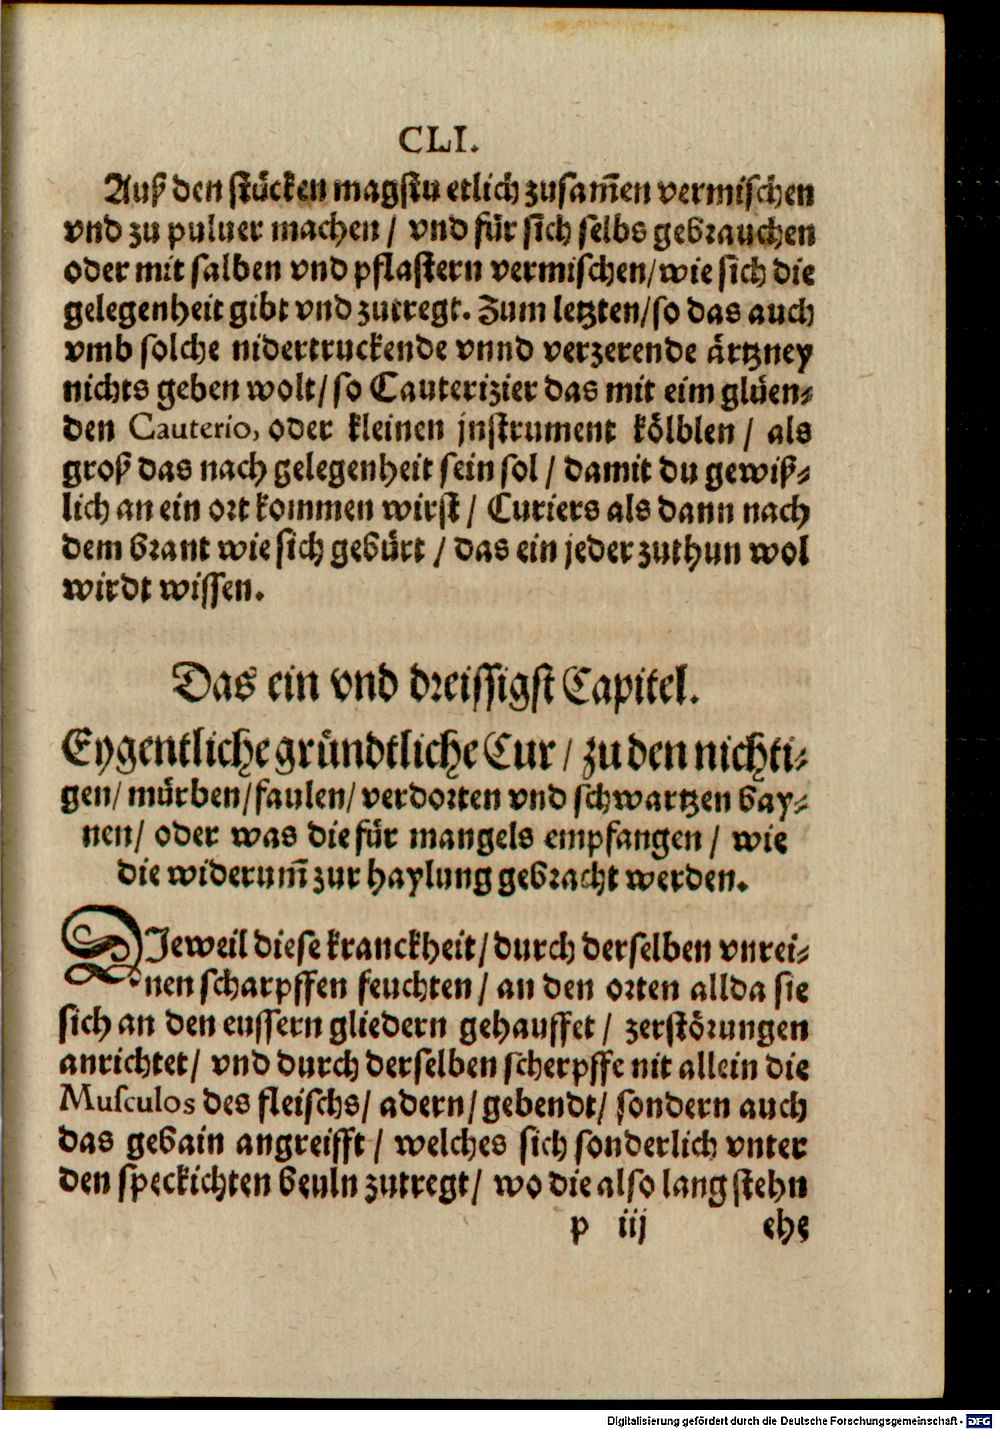 CLI.
Auß den stücken magstu etlich zusam̄en vermischen
vnd zu puluer machen / vnd für sich selbs gebrauchen
oder mit salben vnd pflastern vermischen/wie sich die
gelegenheit gibt vnd zutregt. Zum letzten/so das auch
vmb solche nidertruckende vnnd verzerende ärtzney
nichts geben wolt/ so Cauterizier das mit eim glüen⸗
den Cauterio, oder kleinen jnstrument kölblen / als
groß das nach gelegenheit sein sol / damit du gewiß⸗
lich an ein ort kommen wirst / Curiers als dann nach
dem brant wie sich gebürt / das ein jeder zuthun wol
wirdt wissen.
Das ein vnd dreissigst Capitel.
Eygentliche gründtliche Cur / zu den nichti⸗
gen/ mürben/faulen/ verdorten vnd schwartzen bay⸗
nen/ oder was die für mangels empfangen / wie
die widerum̄ zur haylung gebracht werden.
DJeweil diese kranckheit/ durch derselben vnrei⸗
nen scharpffen feuchten / an den orten allda sie
sich an den eussern gliedern gehauffet / zerstörungen
anrichtet/ vnd durch derselben scherpffe nit allein die
Musculos des fleischs/ adern/ gebendt/ sondern auch
das gebain angreifft / welches sich sonderlich vnter
den speckichten beuln zutregt/ wo die also lang stehn
p iij ehe
Digitalisierung gefördert durch die Deutsche Forschungsgemeinschaft - DFG